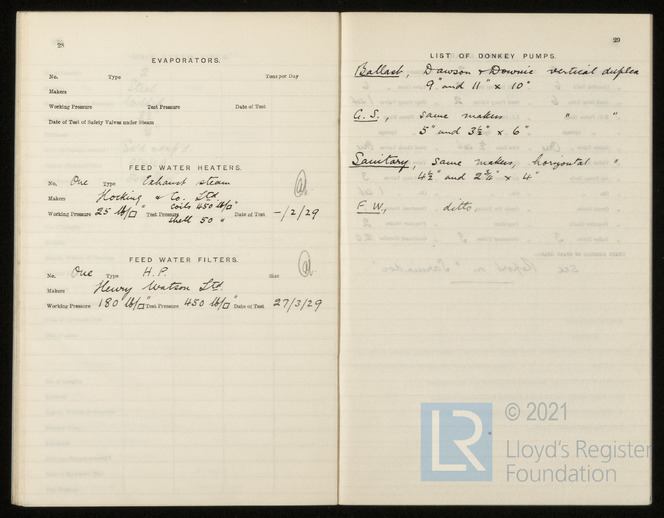 28
EVAPORATORS.
No. Type Tons per Day
Makers
Working Pressure Test Pressure Date of Test
Date of Test of Safety Valves under Steam
FEED WATER HEATERS.
No. One Type Exhaust steam
Makers Hocking & Co. Ltd
Working Pressure 25 lb/□" Test Pressure coils 450 lb/□" shell 50 " Date of Test -/2/29
FEED WATER FILTERS.
No. One Type H.P. Size
Makers Henry Watson Ltd.
Working Pressure 180 lb/□" Test Pressure 450 lb/□" Date of Test 27/3/29
29
LIST OF DONKEY PUMPS.
Ballast, Dawson & Downie vertical duplex
9" and 11" x 10"
G.S., same makers " "
5" and 3½" x 6"
Sanitary, same makers, horizontal "
4½" and 2¾" x 4"
F.W., ditto
© 2021
LR
Lloyd's Register
Foundation